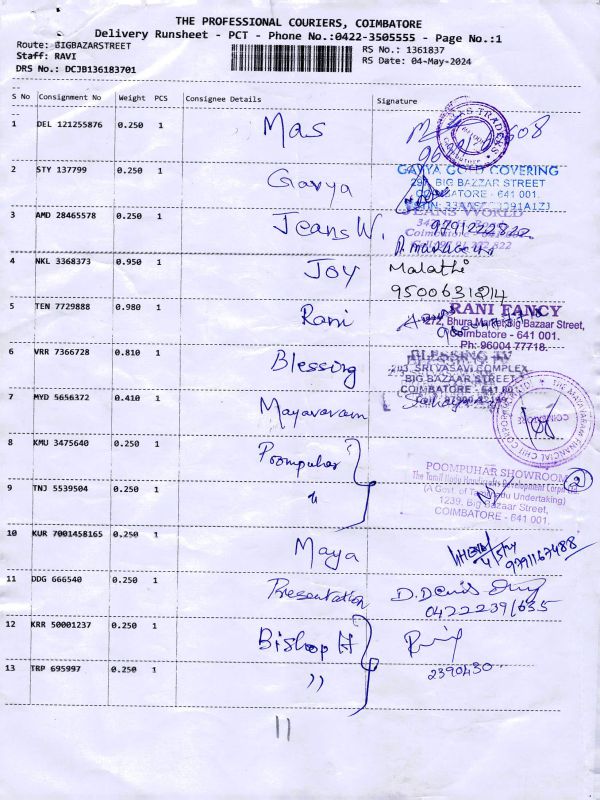 THE PROFESSIONAL COURIERS, COIMBATORE
Delivery Runsheet - PCT - Phone No.:0422-3505555 - Page No.:1
Route: BIGBAZARSTREET
RS No.: 1361837
Staff: RAVI
RS Date: 04-May-2024
DRS No.: DCJB136183701
S No Consignment No Weight PCS Consignee Details Signature
1 DEL 121255876 0.250 1 Mas
2 STY 137799 0.250 1 Gavya
GAVYA GOLD COVERING
BIG BAZZAR STREET
COIMBATORE - 641 001.
3 AMD 28465578 0.250 1 Jeans W.
JEANS WORLD
9791222822
4 NKL 3368373 0.950 1 Joy Malathi
5 TEN 7729888 0.980 1 Rani
RANI FANCY
272, Bhura Market, Big Bazaar Street,
Coimbatore - 641 001.
Ph: 96004 77718.
6 VRR 7366728 0.810 1 Blessing
SRI VASAVI COMPLEX
BIG BAZAAR STREET
COIMBATORE - 641 001
7 MYD 5656372 0.410 1 Mayavaram
8 KMU 3475640 0.250 1 Poompuhar
POOMPUHAR SHOWROOM
The Tamil Nadu Handicrafts Development Corpn Ltd
(A Govt. of Tamilnadu Undertaking)
1239, Big Bazaar Street,
COIMBATORE - 641 001.
2
9 TNJ 5539504 0.250 1 "
10 KUR 7001458165 0.250 1 Maya
9791167488
11 DDG 666540 0.250 1 Presentation
12 KRR 50001237 0.250 1 Bishop H
13 TRP 695997 0.250 1 "
2390430
11